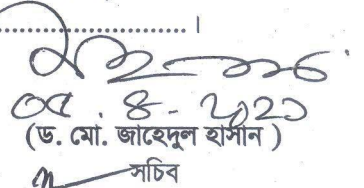 ..................................।
০৫.৪-২০২১
(ড. মো. জাহেদুল হাসান )
সচিব